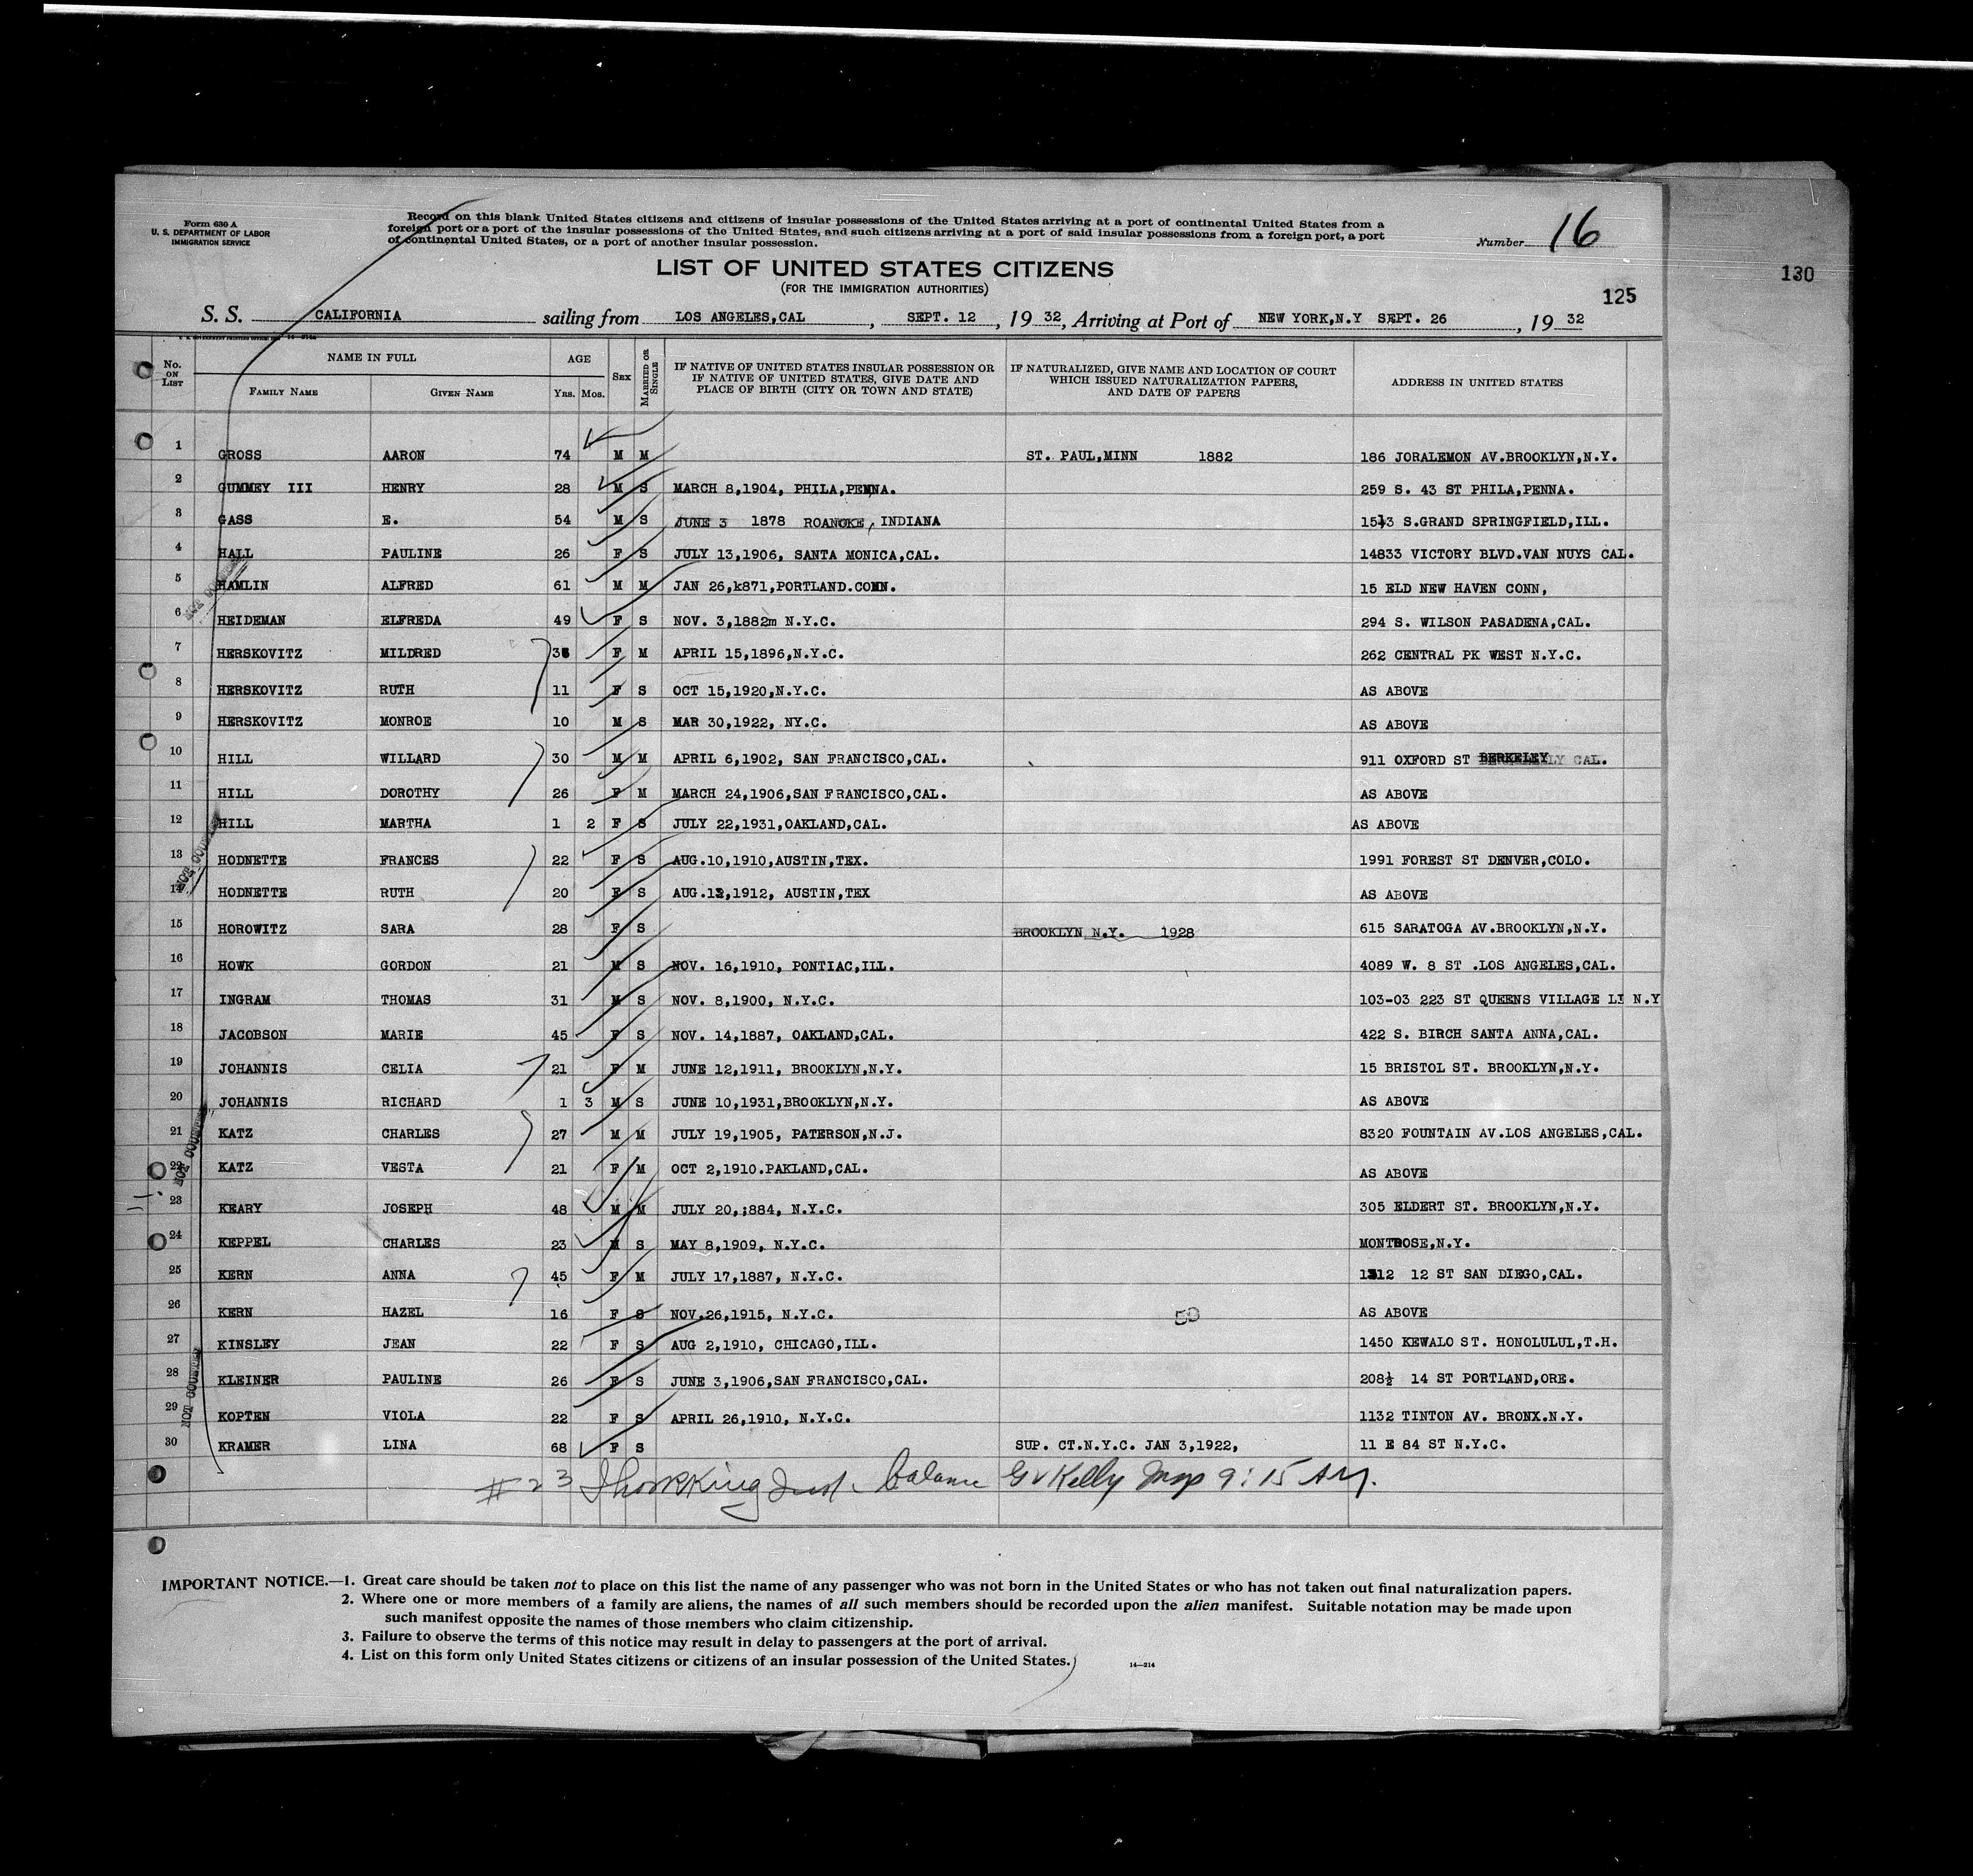 Form 630 A
U. S. DEPARTMENT OF LABOR
IMMIGRATION SERVICE
Record on this blank United States citizens and citizens of insular possessions of the United States arriving at a port of continental United States from a
foreign port or a port of the insular possessions of the United States, and such citizens arriving at a port of said insular possessions from a foreign port, a port
of continental United States, or a port of another insular possession.
Number 16
130
LIST OF UNITED STATES CITIZENS
(FOR THE IMMIGRATION AUTHORITIES)
125
S. S. CALIFORNIA sailing from LOS ANGELES,CAL , SEPT. 12 , 19 32, Arriving at Port of NEW YORK,N.Y SEPT. 26 , 19 32
No. ON LIST NAME IN FULL FAMILY NAME GIVEN NAME AGE YRS. MOS. SEX MARRIED OR SINGLE IF NATIVE OF UNITED STATES INSULAR POSSESSION OR IF NATIVE OF UNITED STATES, GIVE DATE AND PLACE OF BIRTH (CITY OR TOWN AND STATE) IF NATURALIZED, GIVE NAME AND LOCATION OF COURT WHICH ISSUED NATURALIZATION PAPERS, AND DATE OF PAPERS ADDRESS IN UNITED STATES
1 GROSS AARON 74 M M ST. PAUL,MINN 1882 186 JORALEMON AV.BROOKLYN,N.Y.
2 GUMMEY III HENRY 28 M S MARCH 8,1904, PHILA,PENNA. 259 S. 43 ST PHILA,PENNA.
3 GASS E. 54 M S JUNE 3 1878 ROANOKE, INDIANA 1513 S.GRAND SPRINGFIELD,ILL.
4 HALL PAULINE 26 F S JULY 13,1906, SANTA MONICA,CAL. 14833 VICTORY BLVD.VAN NUYS CAL.
5 HAMLIN ALFRED 61 M M JAN 26,k871,PORTLAND.CONN. 15 ELD NEW HAVEN CONN,
6 HEIDEMAN ELFREDA 49 F S NOV. 3,1882m N.Y.C. 294 S. WILSON PASADENA,CAL.
7 HERSKOVITZ MILDRED 36 F M APRIL 15,1896,N.Y.C. 262 CENTRAL PK WEST N.Y.C.
8 HERSKOVITZ RUTH 11 F S OCT 15,1920,N.Y.C. AS ABOVE
9 HERSKOVITZ MONROE 10 M S MAR 30,1922, NY.C. AS ABOVE
10 HILL WILLARD 30 M M APRIL 6,1902, SAN FRANCISCO,CAL. 911 OXFORD ST BERKELEY CAL.
11 HILL DOROTHY 26 F M MARCH 24,1906,SAN FRANCISCO,CAL. AS ABOVE
12 HILL MARTHA 1 2 F S JULY 22,1931,OAKLAND,CAL. AS ABOVE
13 HODNETTE FRANCES 22 F S AUG.10,1910,AUSTIN,TEX. 1991 FOREST ST DENVER,COLO.
14 HODNETTE RUTH 20 F S AUG.12,1912, AUSTIN,TEX AS ABOVE
15 HOROWITZ SARA 28 F S BROOKLYN N.Y. 1928 615 SARATOGA AV.BROOKLYN,N.Y.
16 HOWK GORDON 21 M S NOV. 16,1910, PONTIAC,ILL. 4089 W. 8 ST .LOS ANGELES,CAL.
17 INGRAM THOMAS 31 M S NOV. 8,1900, N.Y.C. 103-03 223 ST QUEENS VILLAGE LI N.Y
18 JACOBSON MARIE 45 F S NOV. 14,1887, OAKLAND,CAL. 422 S. BIRCH SANTA ANNA,CAL.
19 JOHANNIS CELIA 21 F M JUNE 12,1911, BROOKLYN,N.Y. 15 BRISTOL ST. BROOKLYN,N.Y.
20 JOHANNIS RICHARD 1 3 M S JUNE 10,1931,BROOKLYN,N.Y. AS ABOVE
21 KATZ CHARLES 27 M M JULY 19,1905, PATERSON,N.J. 8320 FOUNTAIN AV.LOS ANGELES,CAL.
22 KATZ VESTA 21 F M OCT 2,1910.PAKLAND,CAL. AS ABOVE
23 KEARY JOSEPH 48 M M JULY 20,;884, N.Y.C. 305 ELDERT ST. BROOKLYN,N.Y.
24 KEPPEL CHARLES 23 M S MAY 8,1909, N.Y.C. MONTROSE,N.Y.
25 KERN ANNA 45 F M JULY 17,1887, N.Y.C. 12 ST SAN DIEGO,CAL.
26 KERN HAZEL 16 F S NOV.26,1915, N.Y.C. 50 AS ABOVE
27 KINSLEY JEAN 22 F S AUG 2,1910, CHICAGO,ILL. 1450 KEWALO ST. HONOLULUL,T.H.
28 KLEINER PAULINE 26 F S JUNE 3,1906,SAN FRANCISCO,CAL. 208½ 14 ST PORTLAND,ORE.
29 KOPTEN VIOLA 22 F S APRIL 26,1910, N.Y.C. 1132 TINTON AV. BRONX.N.Y.
30 KRAMER LINA 68 F S SUP. CT.N.Y.C. JAN 3,1922, 11 E 84 ST N.Y.C.
NOT COUNTED
NOT COUNTED
NOT COUNTED
NOT COUNTED
#23 balance Kelly Insp 9:15 AM.
IMPORTANT NOTICE.—1. Great care should be taken not to place on this list the name of any passenger who was not born in the United States or who has not taken out final naturalization papers.
2. Where one or more members of a family are aliens, the names of all such members should be recorded upon the alien manifest. Suitable notation may be made upon
such manifest opposite the names of those members who claim citizenship.
3. Failure to observe the terms of this notice may result in delay to passengers at the port of arrival.
4. List on this form only United States citizens or citizens of an insular possession of the United States.
14—214